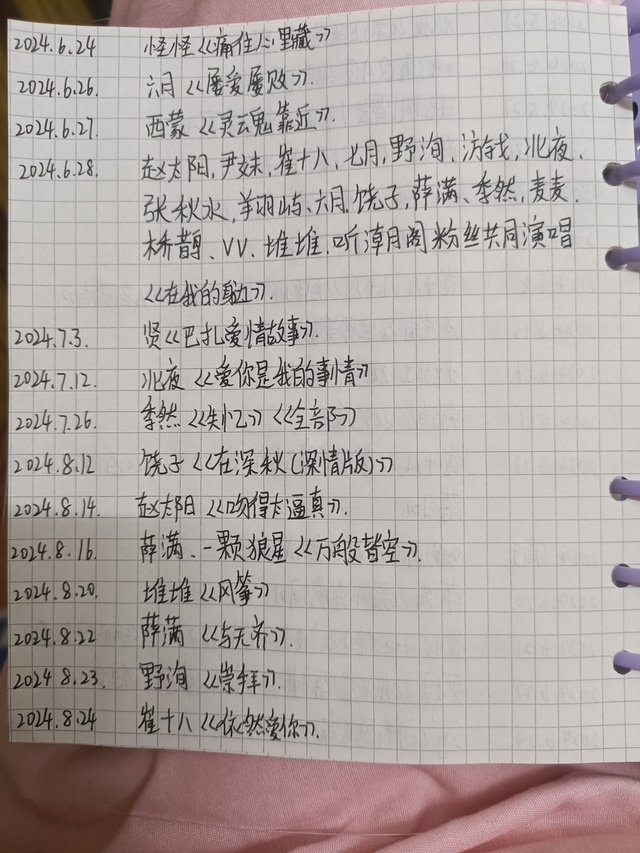 2024.6.24 怪怪《痛往心里藏》
2024.6.26. 六月《屡爱屡败》.
2024.6.27. 西蒙《灵魂靠近》.
2024.6.28. 赵太阳,尹姝,崔十八,七月,野洵,访戗,北夜.
张秋水,羊羽屿,六月,饶子,薛满、季然,麦麦.
桥鹊、VV、堆堆.听淖月阁粉丝共同演唱
《在我的身边》.
2024.7.3. 贤《巴扎爱情故事》.
2024.7.12. 北夜《爱你是我的事情》
2024.7.26. 季然《失忆》《全部》
2024.8.12 饶子《在深秋(深情版)》
2024.8.14. 赵太阳《吻得太逼真》.
2024.8.16. 薛满、一颗狼星《万般皆空》.
2024.8.20. 堆堆《风筝》
2024.8.22 薛满《与天齐》.
2024.8.23. 野洵《崇拜》.
2024.8.24 崔十八《依然爱你》.